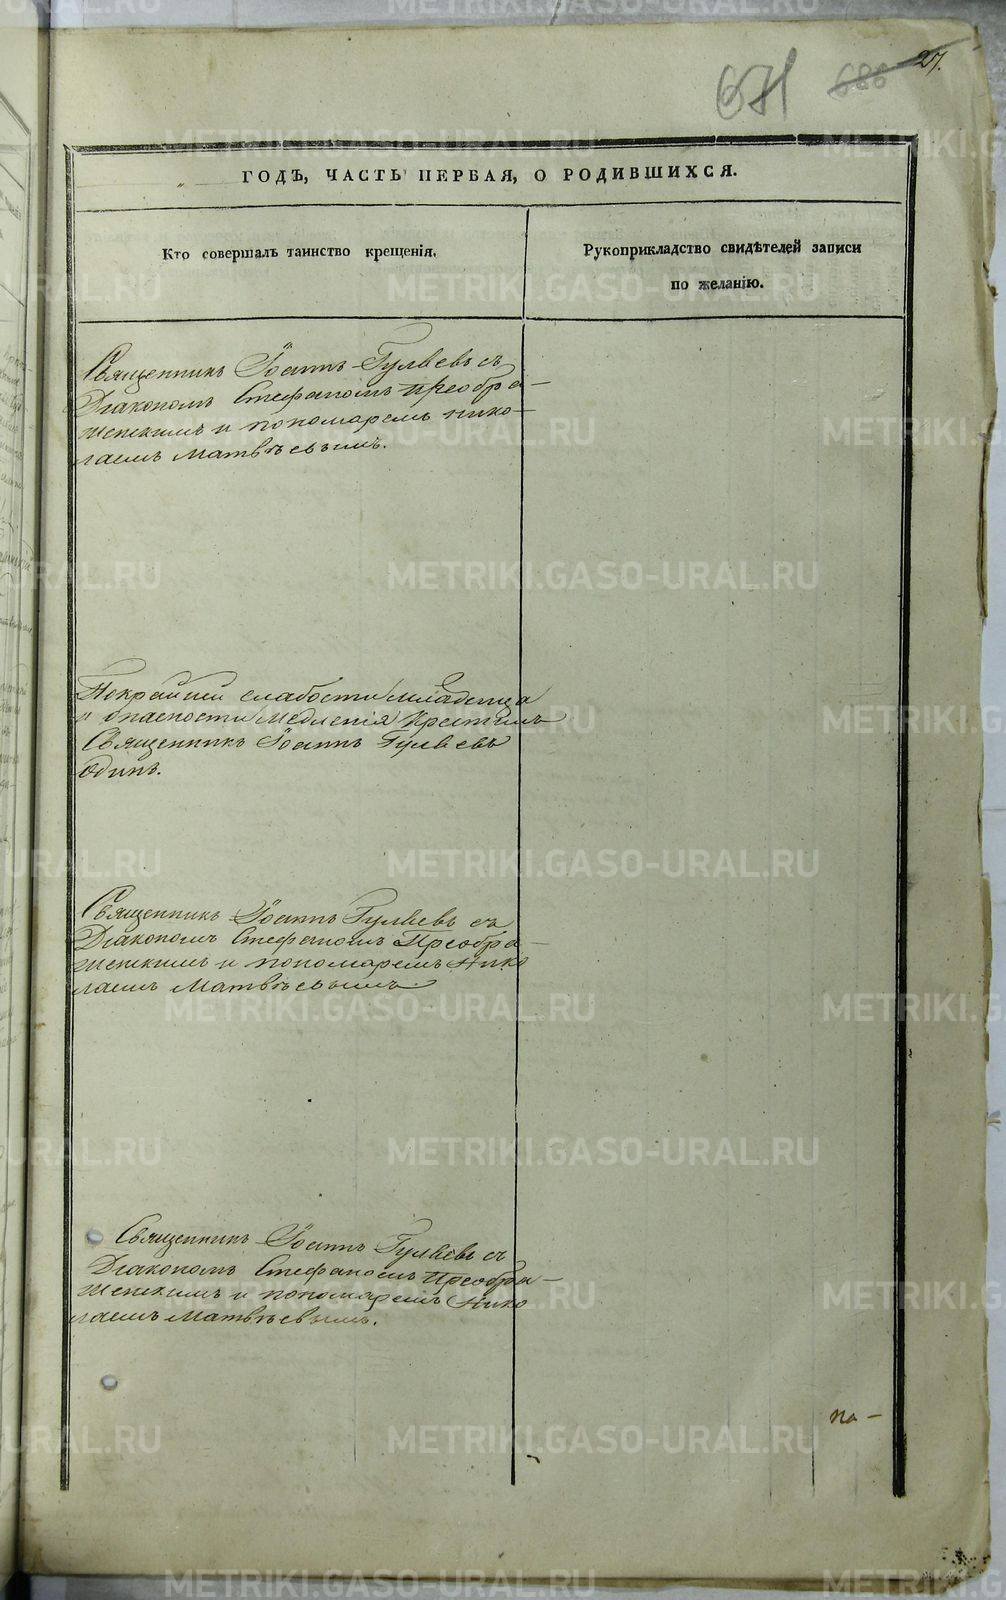 671 686 27.
ГОДЪ, ЧАСТЬ ПЕРВАЯ, О РОДИВШИХСЯ.
Кто совершалъ таинство крещенія.
Рукоприкладство свидѣтелей записи
по желанію.
Священникъ Іоаннъ Гуляевъ съ
Діакономъ Стефаномъ Преобра-
женскимъ и пономаремъ Нико-
лаемъ Матвѣевымъ.
По крайней слабости младенца
и опасности медленія крестилъ
Священникъ Іоаннъ Гуляевъ
одинъ.
Священникъ Іоаннъ Гуляевъ съ
Діакономъ Стефаномъ Преобра-
женскимъ и пономаремъ Нико
лаемъ Матвѣевымъ
Священникъ Іоаннъ Гуляевъ съ
Діакономъ Стефаномъ Преобра-
женскимъ и пономаремъ Нико
лаемъ Матвѣевымъ.
по-
METRIKI.GASO-URAL.RU